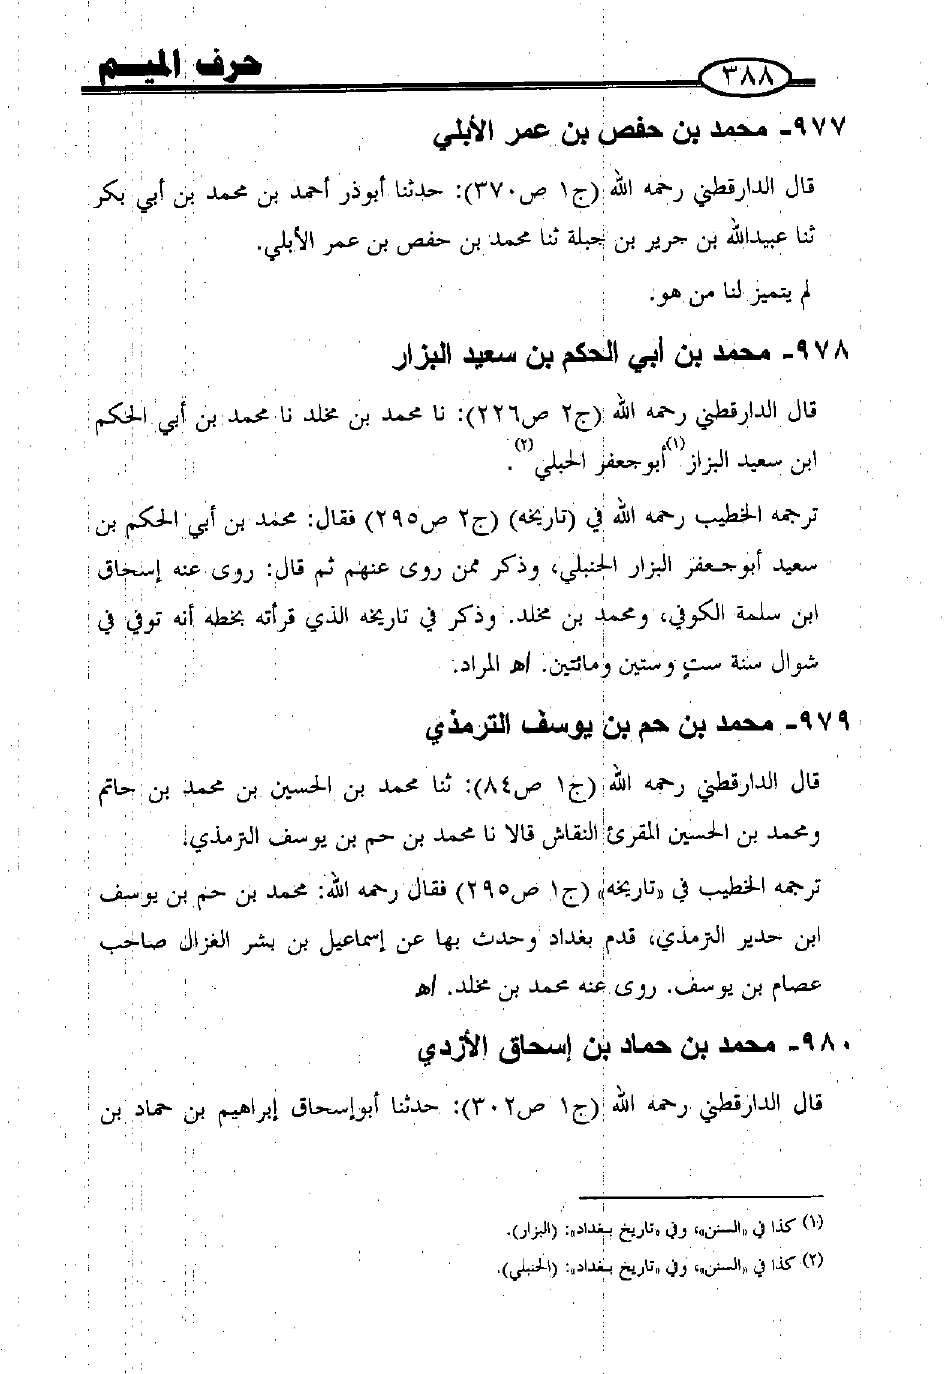 ٣٨٨
حرف الميم
٩٧٧- محمد بن حفص بن عمر الأبلي
قال الدارقطني رحمه الله (ج١ ص٣٧٠): حدثنا أبوذر أحمد بن محمد بن أبي بكر
ثنا عبيدالله بن جرير بن جبلة ثنا محمد بن حفص بن عمر الأبلي.
لم يتميز لنا من هو.
٩٧٨- محمد بن أبي الحكم بن سعيد البزار
قال الدارقطني رحمه الله (ج٢ ص٢٢٦): نا محمد بن مخلد نا محمد بن أبي الحكم
ابن سعيد البزاز(١) أبوجعفر الحبلي(٢).
ترجمه الخطيب رحمه الله في (تاريخه) (ج٢ ص٢٩٥) فقال: محمد بن أبي الحكم بن
سعيد أبوجعفر البزار الحنبلي، وذكر ممن روى عنهم ثم قال: روى عنه إسحاق
ابن سلمة الكوفي، ومحمد بن مخلد. وذكر في تاريخه الذي قرأته بخطه أنه توفي في
شوال سنة ست وستين ومائتين. اﻫ المراد.
٩٧٩- محمد بن حم بن يوسف الترمذي
قال الدارقطني رحمه الله (ج١ ص٨٤): ثنا محمد بن الحسين بن محمد بن حاتم
ومحمد بن الحسين المقرئ النقاش قالا نا محمد بن حم بن يوسف الترمذي.
ترجمه الخطيب في «تاريخه» (ج١ ص٢٩٥) فقال رحمه الله: محمد بن حم بن يوسف
ابن حدير الترمذي، قدم بغداد وحدث بها عن إسماعيل بن بشر الغزال صاحب
عصام بن يوسف. روى عنه محمد بن مخلد. اﻫ
٩٨٠- محمد بن حماد بن إسحاق الأزدي
قال الدارقطني رحمه الله (ج١ ص٣٠٢): حدثنا أبوإسحاق إبراهيم بن حماد بن
(١) كذا في «السنن»، وفي «تاريخ بغداد»: (البزار).
(٢) كذا في «السنن»، وفي «تاريخ بغداد»: (الحنبلي).